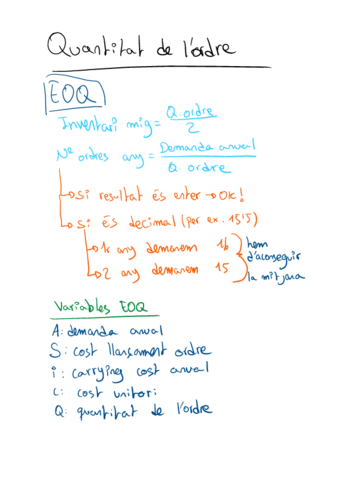 Quantitat de l'ordre
EOQ
Inventari mig = Q. ordre / 2
Nº ordres any = Demanda anual / Q. ordre
→ si resultat és enter → OK!
→ si és decimal (per ex. 15'5)
→ 1r any demanem 16
→ 2 any demanem 15
hem d'aconseguir la mitjana
Variables EOQ
A: demanda anual
S: cost llançament ordre
i: carrying cost anual
c: cost unitari
Q: quantitat de l'ordre